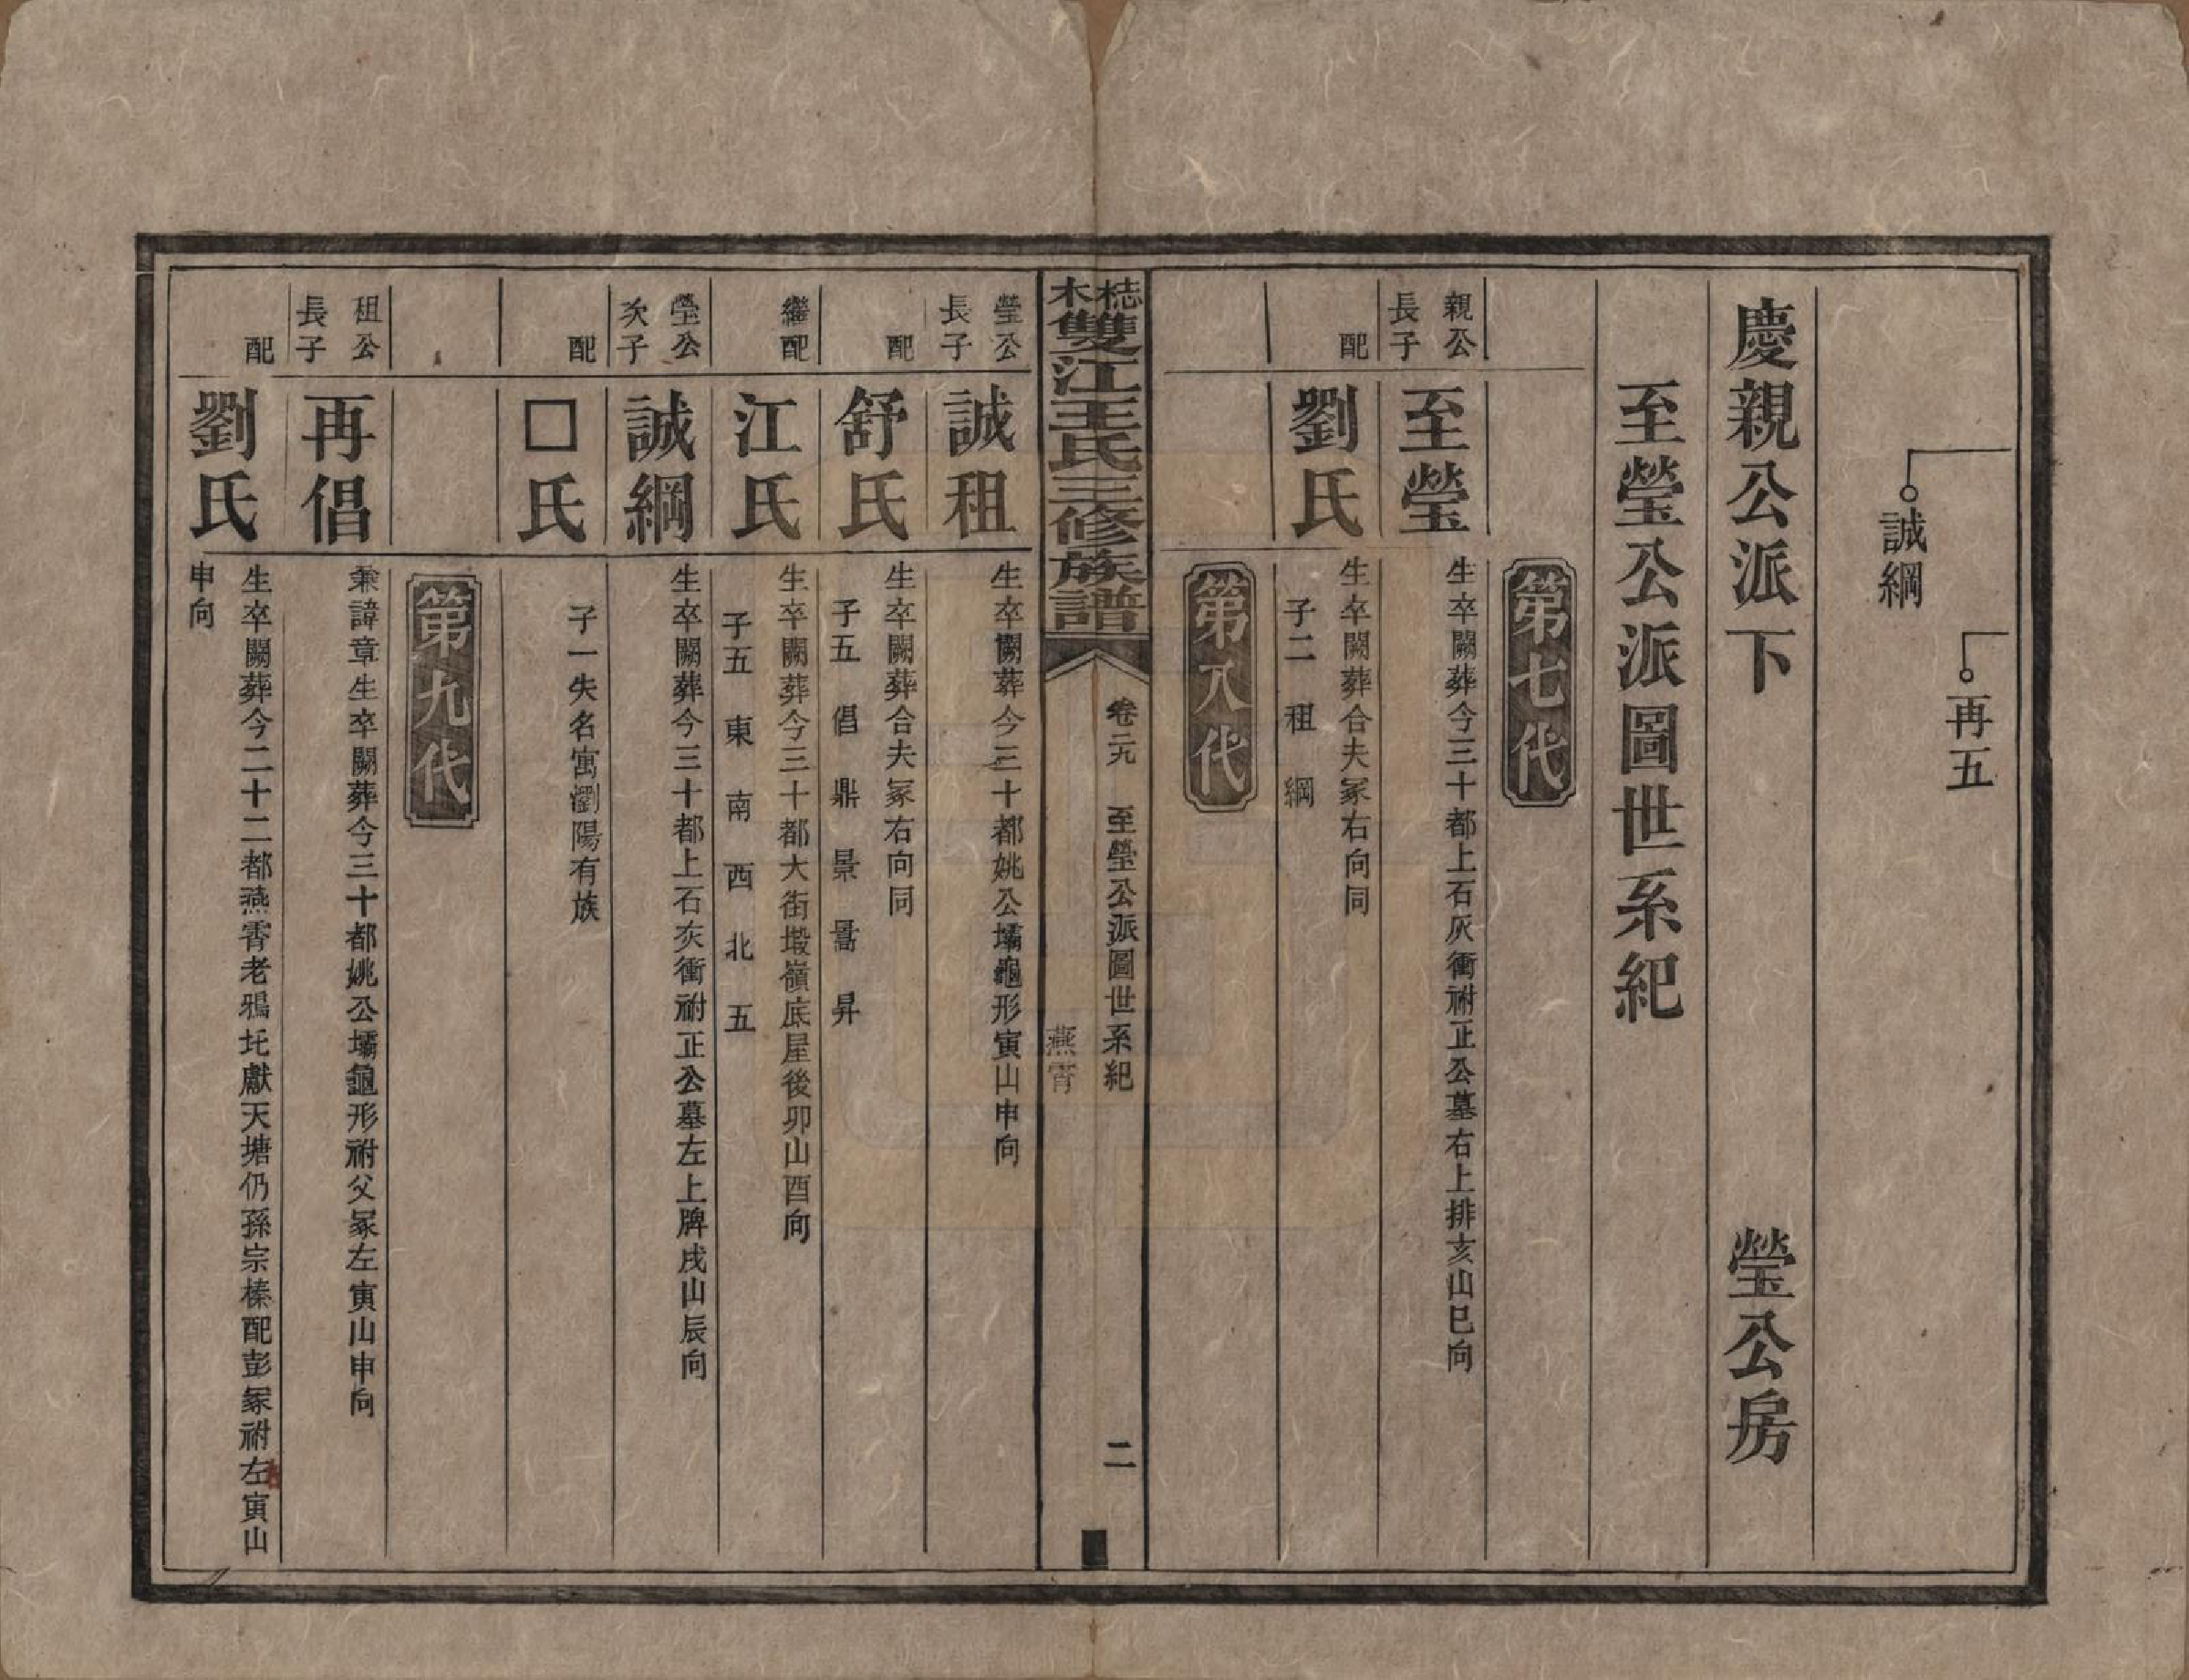 再五
誠綱
慶親公派下 瑩公房
至瑩公派圖世系紀
第七代
親公長子
至瑩
生卒闕葬今三十都上石灰衝祔正公墓右上排亥山巳向
配
劉氏
生卒闕葬合夫冢右向同
子二 租 綱
第八代
梽木雙江王氏三修族譜
卷二九 至瑩公派圖世系紀 二
燕霄
瑩公長子
誠租
生卒闕葬今三十都姚公壩龜形寅山申向
配
舒氏
生卒闕葬合夫冢右向同
子五 倡 鼎 景 暠 昇
繼配
江氏
生卒闕葬今三十都大街塅嶺底屋後卯山酉向
子五 東 南 西 北 五
瑩公次子
誠綱
生卒闕葬今三十都上石灰衝祔正公墓左上牌戌山辰向
配
□氏
子一失名寓瀏陽有族
第九代
租公長子
再倡
兼諱章生卒闕葬今三十都姚公壩龜形祔父冢左寅山申向
配
劉氏
生卒闕葬今二十二都燕霄老鴉圫獻天塘仍孫宗榛配彭冢祔左寅山
申向